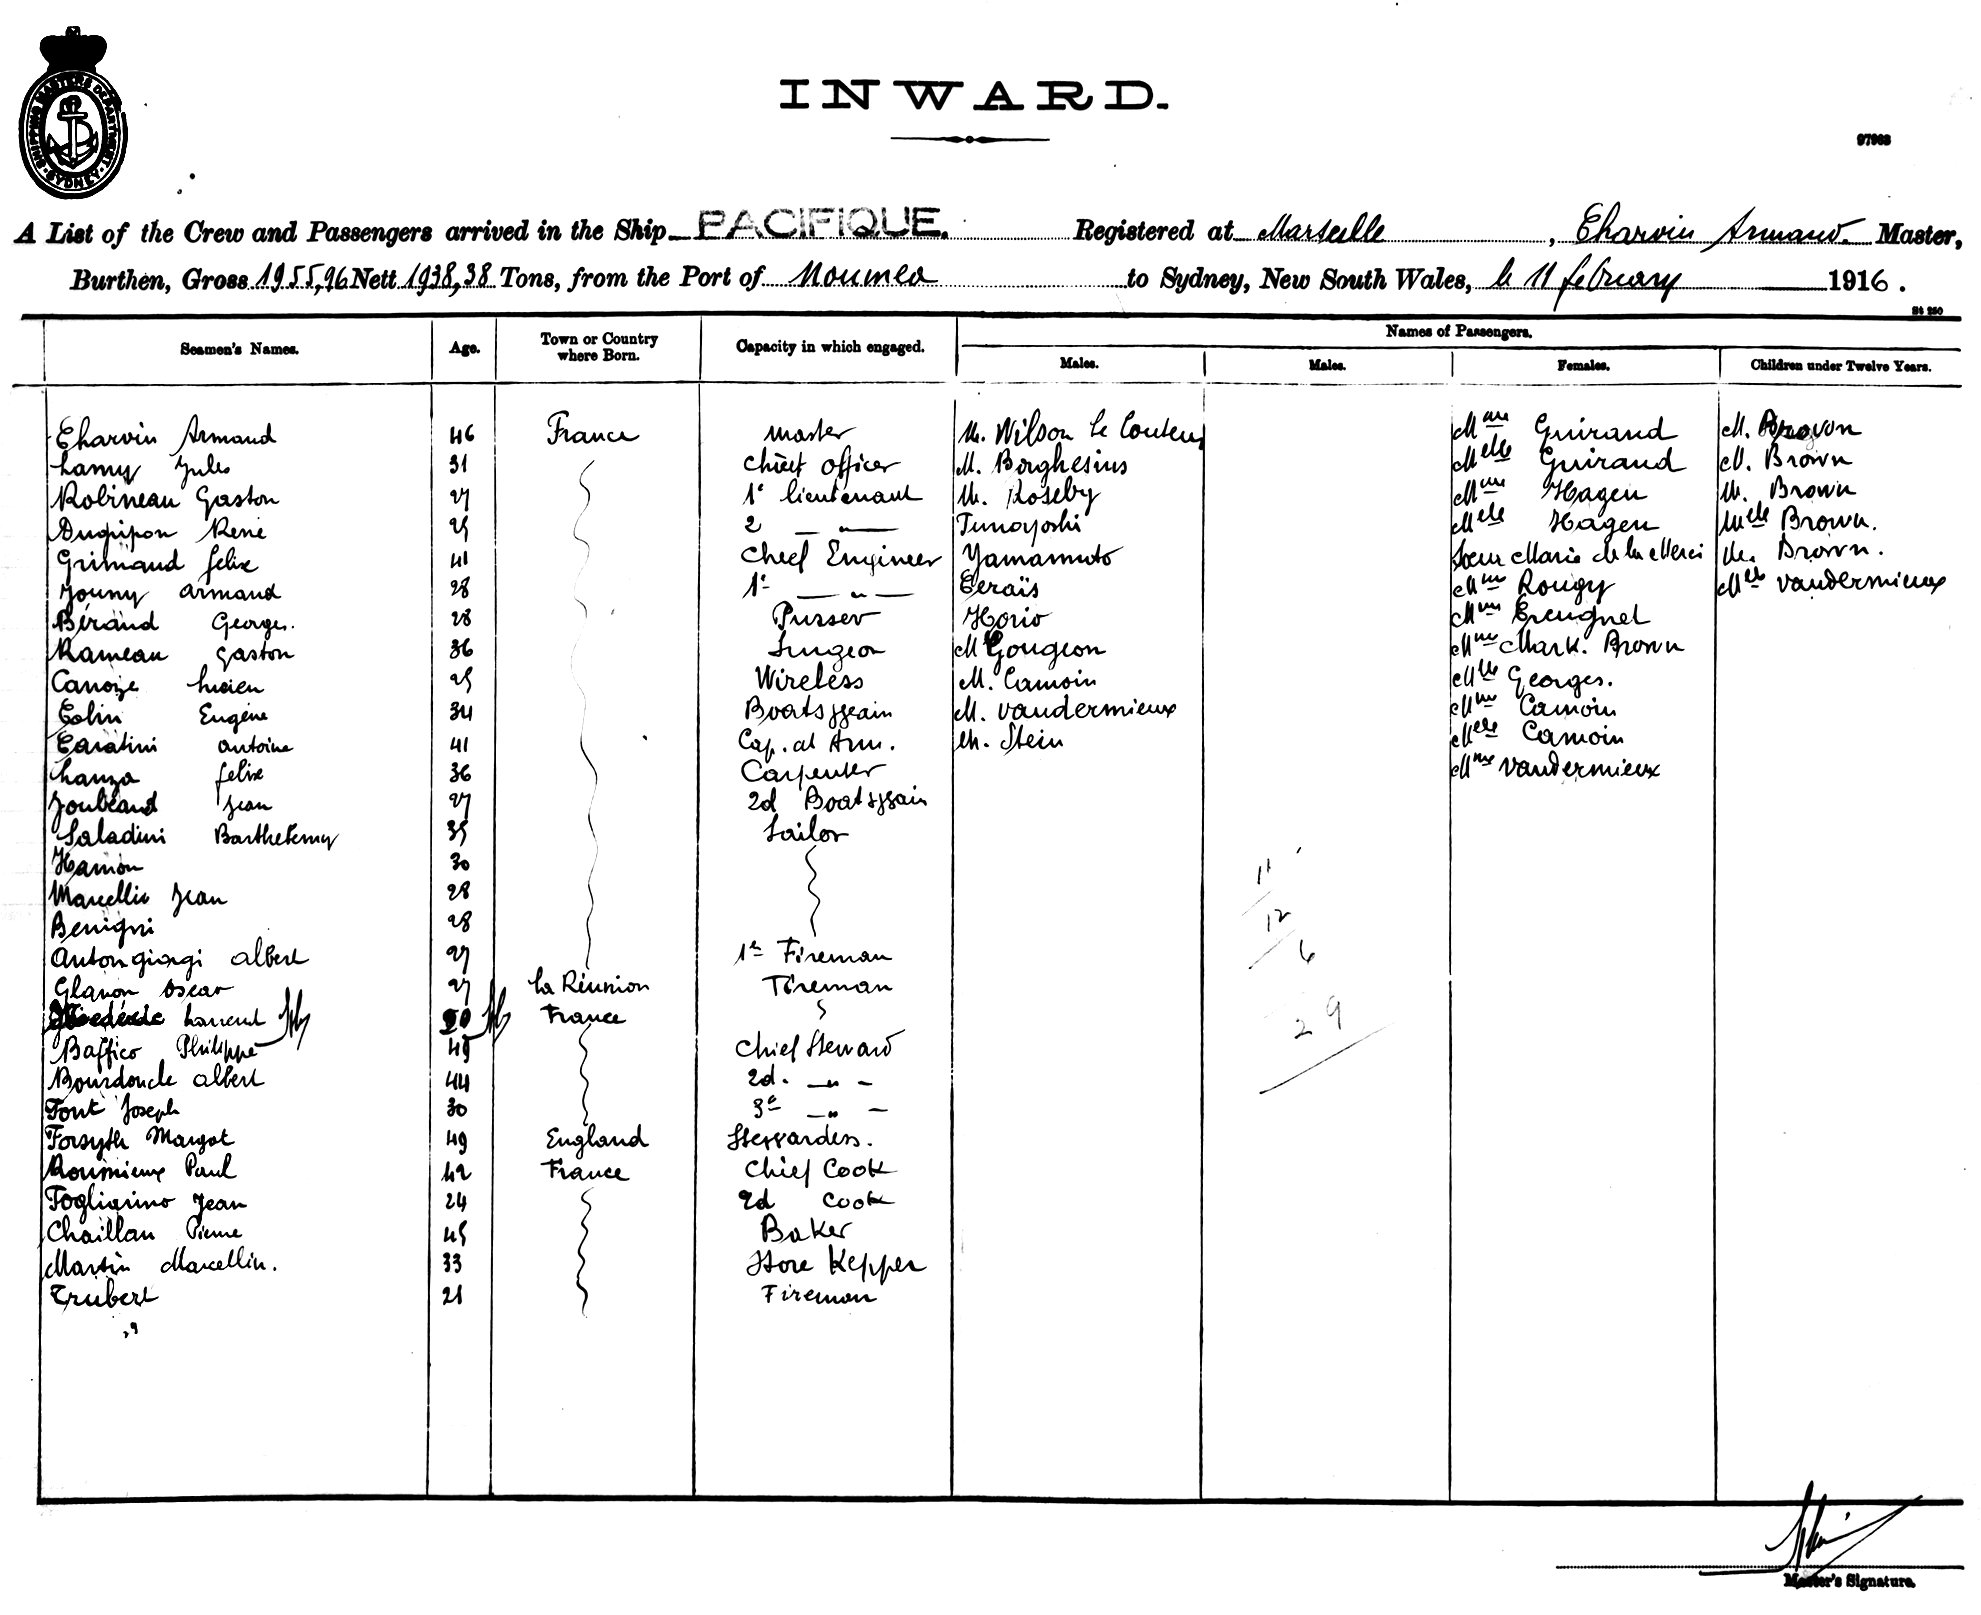 SHIPPING MASTERS DEPARTMENT
SYDNEY
INWARD.
97963
A List of the Crew and Passengers arrived in the Ship PACIFIQUE. Registered at Marseille, Charvin Armand. Master,
Burthen, Gross 1955,96 Nett 1938,38 Tons, from the Port of Noumea to Sydney, New South Wales, le 11 february 1916.
St 250
Seamen's Names. Age. Town or Country where Born. Capacity in which engaged. Names of Passengers.
Males. Males. Females. Children under Twelve Years.
Charvin Armand 46 France Master M. Wilson Le Couteur Mme Guiraud M. Brown
Lamy Jules 31 Chief officer M. Borghesius Melle Guiraud M. Brown
Robineau Gaston 27 1e lieutenant M. Roseby Mme Hagen M. Brown
René 25 2 — " — Tunoyoshi Melle Hagen Melle Brown.
Grimaud felix 41 Cheef Engineer Yamamuto Sœur Marie de la Merci M. Brown.
Jouny Armand 28 1e — " — Ceraïs Mme Rougy Melle Vandermieux
Béraud Georges. 28 Purser Horio Mme Creugnet
Rameau Gaston 36 Surgeon M Gougeon Mme Mark. Brown
Canoze Lucien 25 Wireless M. Camoin Mlle Georges.
Colin Eugène 34 Boatsswain M. Vandermieux Mme Camoin
Caratini Antoine 41 Cap. at Arm. M. Stein Melle Camoin
Lanza felix 36 Carpenter Mme Vandermieux
Joubeaud Jean 27 2d Boatsswain
Saladini Barthelemy 35 Sailor
Hamon 30
Marcellin Jean 28
Benigni 28
Antongiorgi Albert 27 1e Fireman
Glanon Oscar 27 La Réunion Fireman
Laurent France
Baffico Philippe 49 Chief Steward
Bourdoncle Albert 44 2d. — " —
Font Joseph 30 3e — " —
Forsyth Margot 49 England Stewardess.
Roumieux Paul 42 France Chief Cook
Fogliarino Jean 24 2d Cook
Chaillan Pierre 45 Baker
Martin Marcellin. 33 Store Kepper
Trubert 21 Fireman
11
12
6
29
Master's Signature.